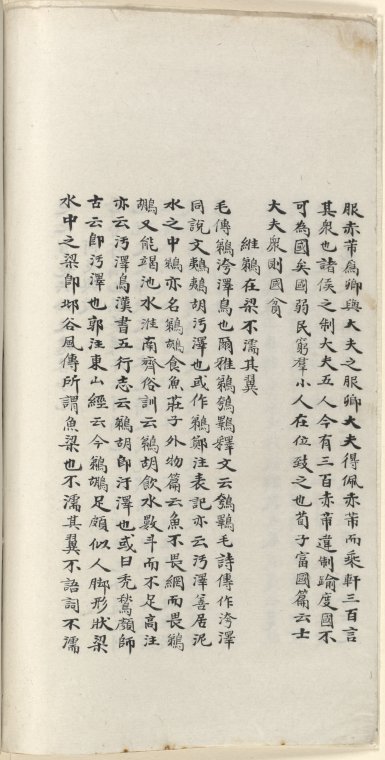 服赤芾為卿與大夫之服卿大夫得佩赤芾而乘軒三百言
其衆也諸侯之制大夫五人今有三百赤芾違制踰度國不
可為國矣國弱民窮羣小人在位致之也荀子富國篇云士
大夫衆則國貧
維鵜在梁不濡其翼
毛傳鵜洿澤鳥也爾雅鵜鴮鸅釋文云鴮鸅毛詩傳作洿澤
同說文鵜鵜胡污澤也或作鵜鄭注表記亦云污澤善居泥
水之中鵜亦名鵜鶘食魚莊子外物篇云魚不畏網而畏鵜
鶘又能竭池水淮南齊俗訓云鵜胡飲水數斗而不足高注
亦云污澤鳥漢書五行志云鵜胡即汙澤也或曰禿鶖顏師
古云即污澤也郭注東山經云今鵜鶘足頗似人脚形狀梁
水中之梁即邶谷風傳所謂魚梁也不濡其翼不語詞不濡